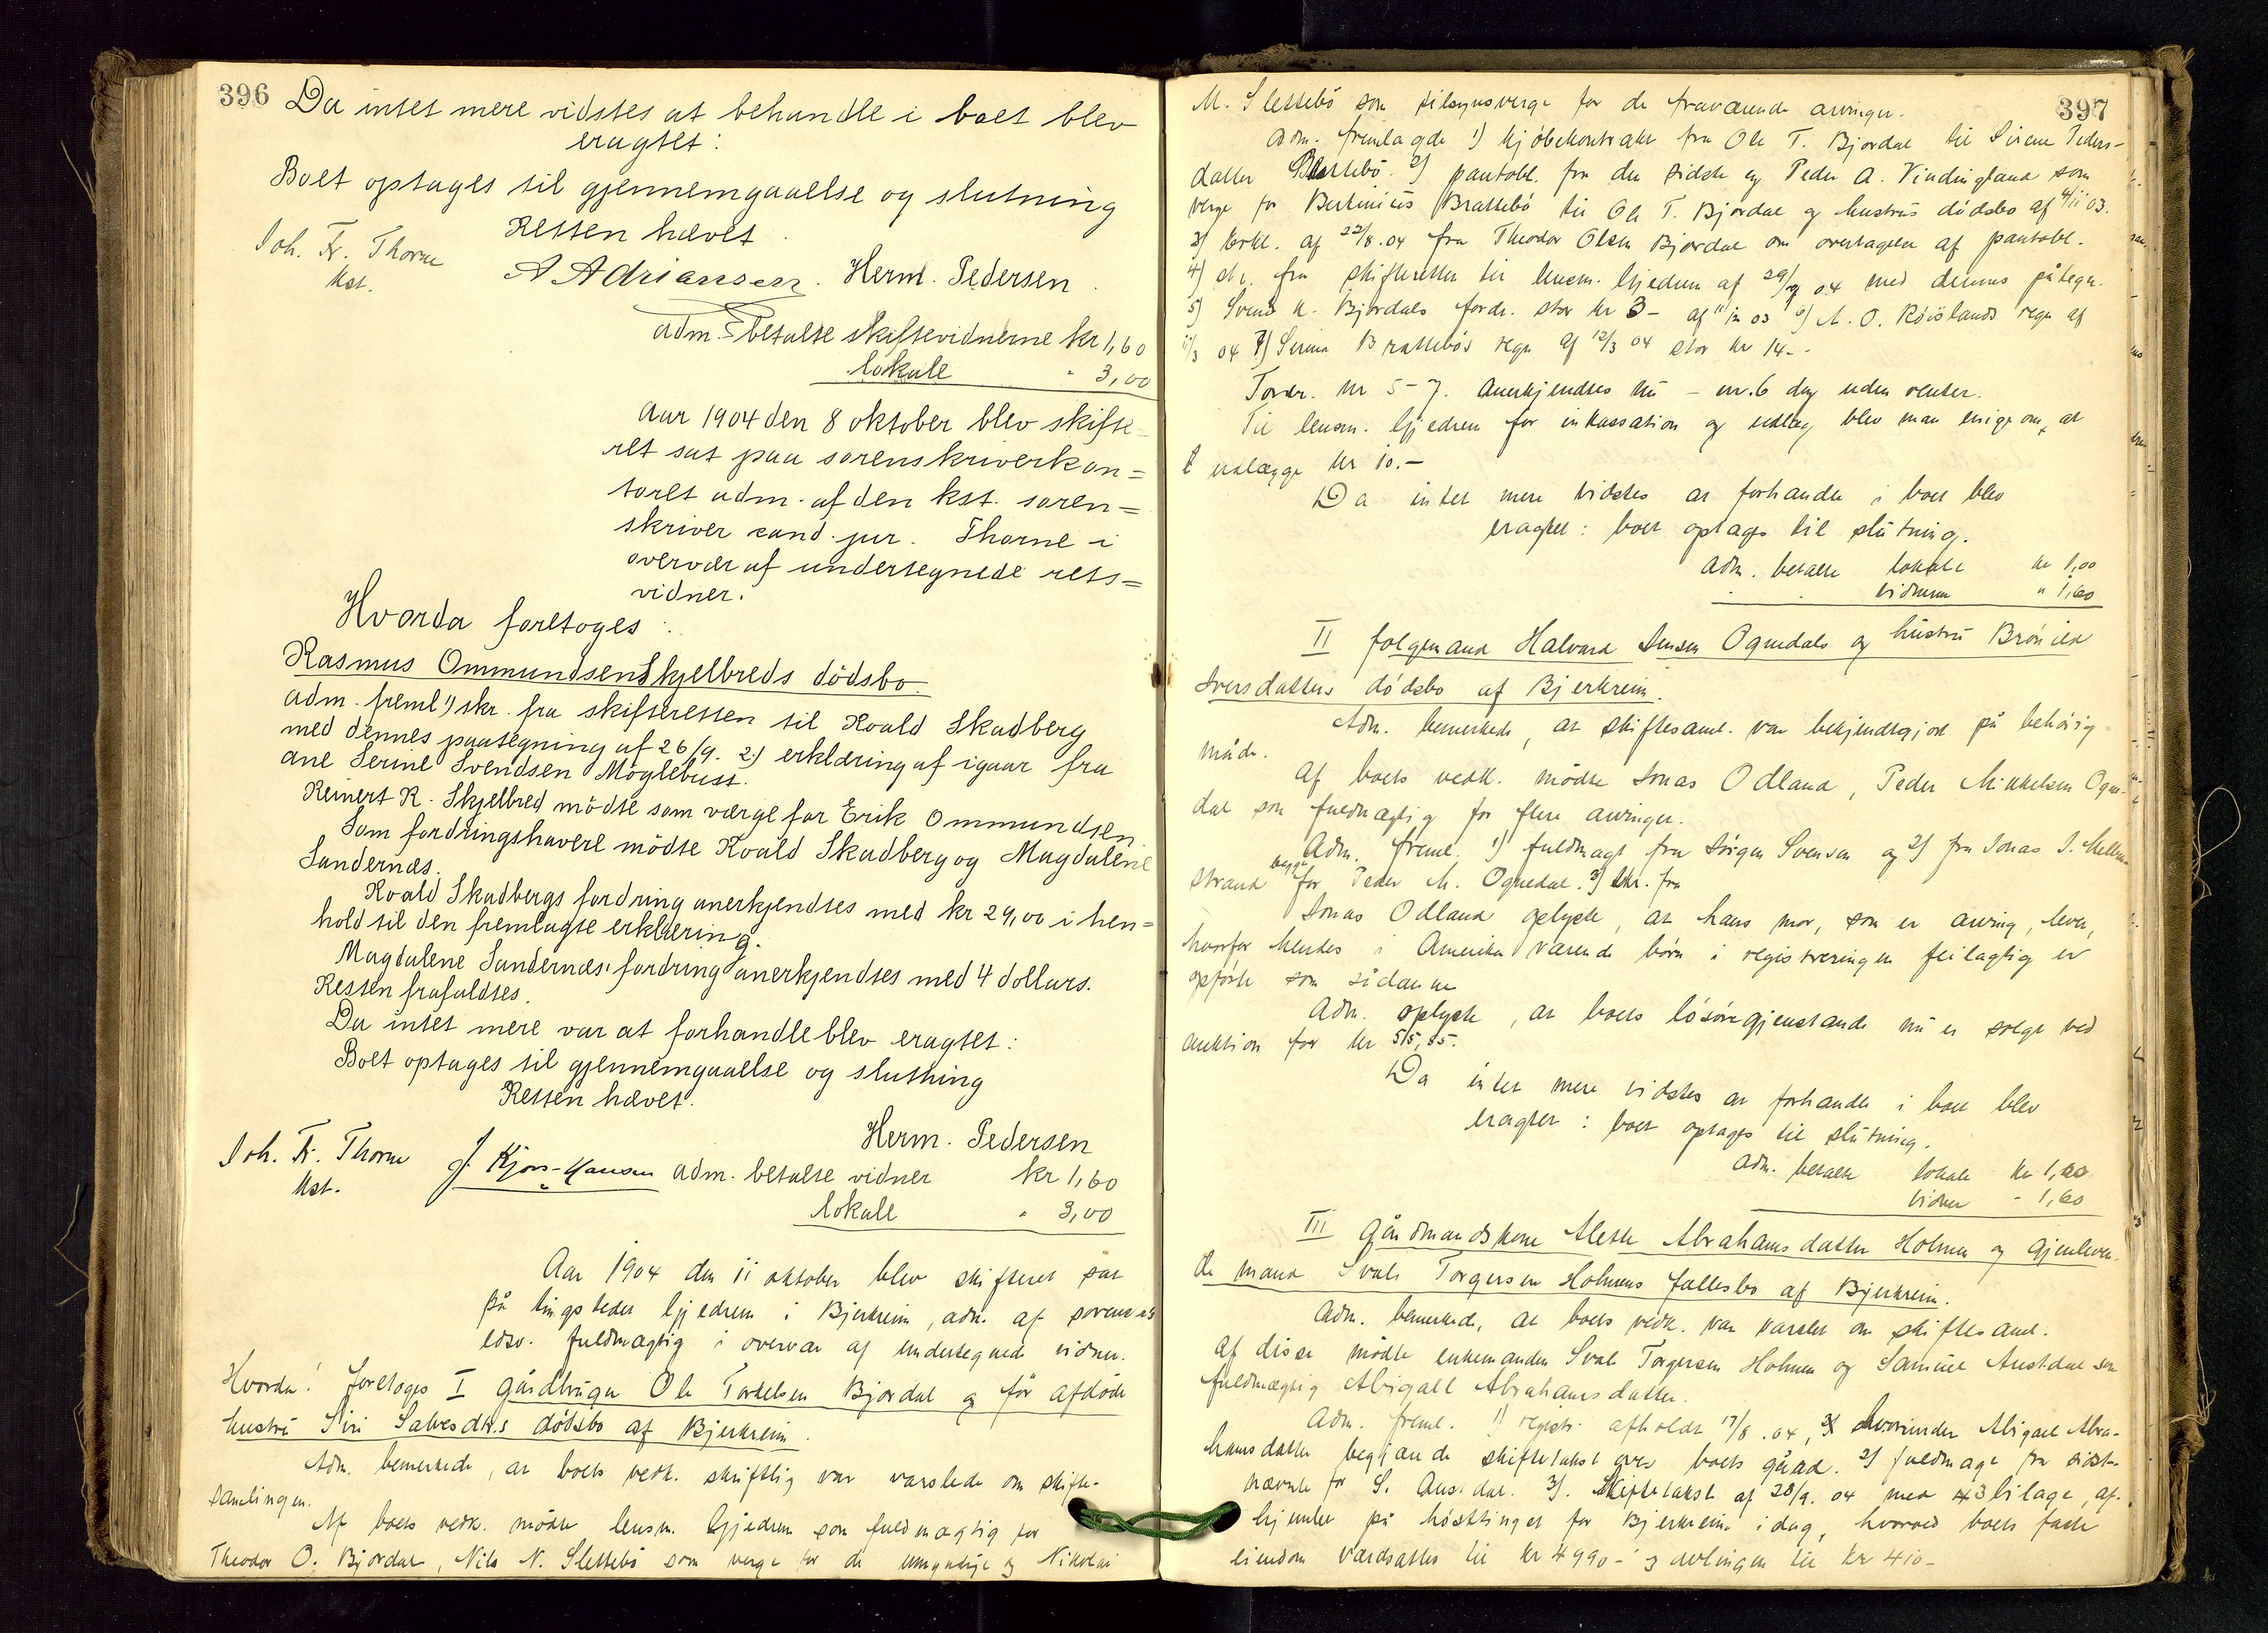 396
Da intet mere vidstes at behandle i boet blev
eragtet:
Boet optages til gjennemgaaelse og slutning
Retten hævet.
Joh. Fr. Thorne
kst.
A Adriansen. Herm. Pedersen.
adm. betalte skiftevidnerne kr 1,60
lokale " 3,00
Aar 1904 den 8 oktober blev skifte-
ret sat paa sorenskriverkon=
toret adm. af den kst. soren=
skriver cand. jur. Thorne i
overvær af undertegnede rets=
vidner.
Hvorda foretoges:
Rasmus Ommundsen Skjelbreds dödsbo.
adm. freml. 1) skr. fra skifteretten til Roald Skadberg
med dennes paategning af 26/9. 2) erklæring af igaar fra
ane Serine Svendsen Möglebust.
Reinert R. Skjelbred mödte som værge for Erik Ommundsen
Som fordringshavere mödte Roald Skadberg og Magdalene
Sandernæs.
Roald Skadbergs fordring anerkjendtes med kr 29,00 i hen=
hold til den fremlagte erklæring.
Magdalene Sandernæs' fordring anerkjendtes med 4 dollars.
Retten frafaldtes.
Da intet mere var at forhandle blev eragtet:
Boet optages til gjennemgaaelse og slutning
Retten hævet.
Herm. Pedersen
Joh. Fr. Thorne
kst.
J. Kjørs-Hansen adm. betalte vidner kr 1,60
lokale " 3,00
Aar 1904 den 11 oktober blev skifteret sat
på tingstedet Gjedrem i Bjerkreim, adm. af sorenskr.s
edsv. fuldmægtig i overvær af undertegnede vidner.
Hvorda! foretoges I gårdbruger Ole Torkelsen Bjordal og før afdøde
hustru Siri Salvesdtr.s dødsbo af Bjerkreim.
Adm. bemerkede, at boets vedk. skriftlig var varslede om skifte-
samlingen.
Af boets vedk. mødte lensm. Gjedrem som fuldmægtig for
Theodor O. Bjordal, Nils N. Slettebö som verge for de umyndige og Nikolai
397
M. Slettebö som tilsynsverge for de fraværende arvinger.
Adm. fremlagde 1) kjöbekontrakt fra Ole T. Bjordal til Sirene Peders-
datter Brattebö. 2) pantobl. fra den sidste og Peder A. Vindingland som
verge for Bertinius Brattebö til Ole T. Bjordal og hustrus dödsbo af 4/11 03.
3) Erkl. af 22/8.04 fra Theodor Olsen Bjordal om overtagelse af pantobl.
4) skr. fra skifteretten til lensm. Gjedrem af 29/9 04 med dennes påtegn.
5) Svend K. Bjordals fordr. stor kr 3- af 11/12 03 6) A. O. Röislands regn af
11/3 04 7) Sirina Brattebös regn af 12/3 04 stor kr 14.-
Fordr. nr 5-7. anerkjendtes nu - nr. 6 dog uden renter.
Til lensm. Gjedrem for inkassation og udlæg blev man enige om, at
udlægge kr 10.-
Da intet mere vidstes at forhandle i boet blev
eragtet: boet optages til slutning.
Adm. betalte lokale kr 1,00
vidnerne " 1,60
II Følgemand Halvard Jensen Ognedals og hustru Brönild
Sversdatters dödsbo af Bjerkreim.
Adm. bemerkede, at skiftesaml. var bekjendtgjort på behörig
måde.
Af boets vedk. mödte Jonas Odland, Peder Mikkelsen Ogne-
dal som fuldmægtig for flere arvinger.
Adm. freml. 1) fuldmagt fra Jörgen Svensen og 2) fra Jonas J. Mellem-
strand begge for Peder M. Ognedal. 3) Skr. fra
Jonas Odland oplyste, at hans mor, som er arving, lever,
hvorfor hendes i Amerika værende börn i registreringen feilagtig er
opförte som sådanne
Adm. oplyste, at boets lösöregjenstande nu er solgt ved
auktion for kr 515,85.
Da intet mere vidstes at forhandle i boet blev
eragtet: boet optages til slutning.
Adm. betalte lokale kr 1,00
vidner " 1,60
III Gårdmandskone Alette Abrahamsdatter Holmen og gjenleven-
de mand Svale Torgersen Holmens fællesbo af Bjerkreim.
Adm. bemerkede, at boets vedk. var varslet om skiftesaml.
Af disse mödte enkemanden Svale Torgersen Holmen og Samuel Austdal som
fuldmægtig Abigael Abrahamsdatter.
Adm. freml. 1) registr. afholdt 17/8.04, hvorunder Abigael Abra-
hamsdatter begjærede skiftetakst over boets gård. 2) fuldmagt fra sidst-
nævnte for S. Austdal. 3). Skiftetakst af 28/9.04 med 3 bilage, af-
hjemlet på hösttinget for Bjerkreim idag, hvorved boets faste
eiendom værdsattes til kr 4990- og avlingen til kr 410-